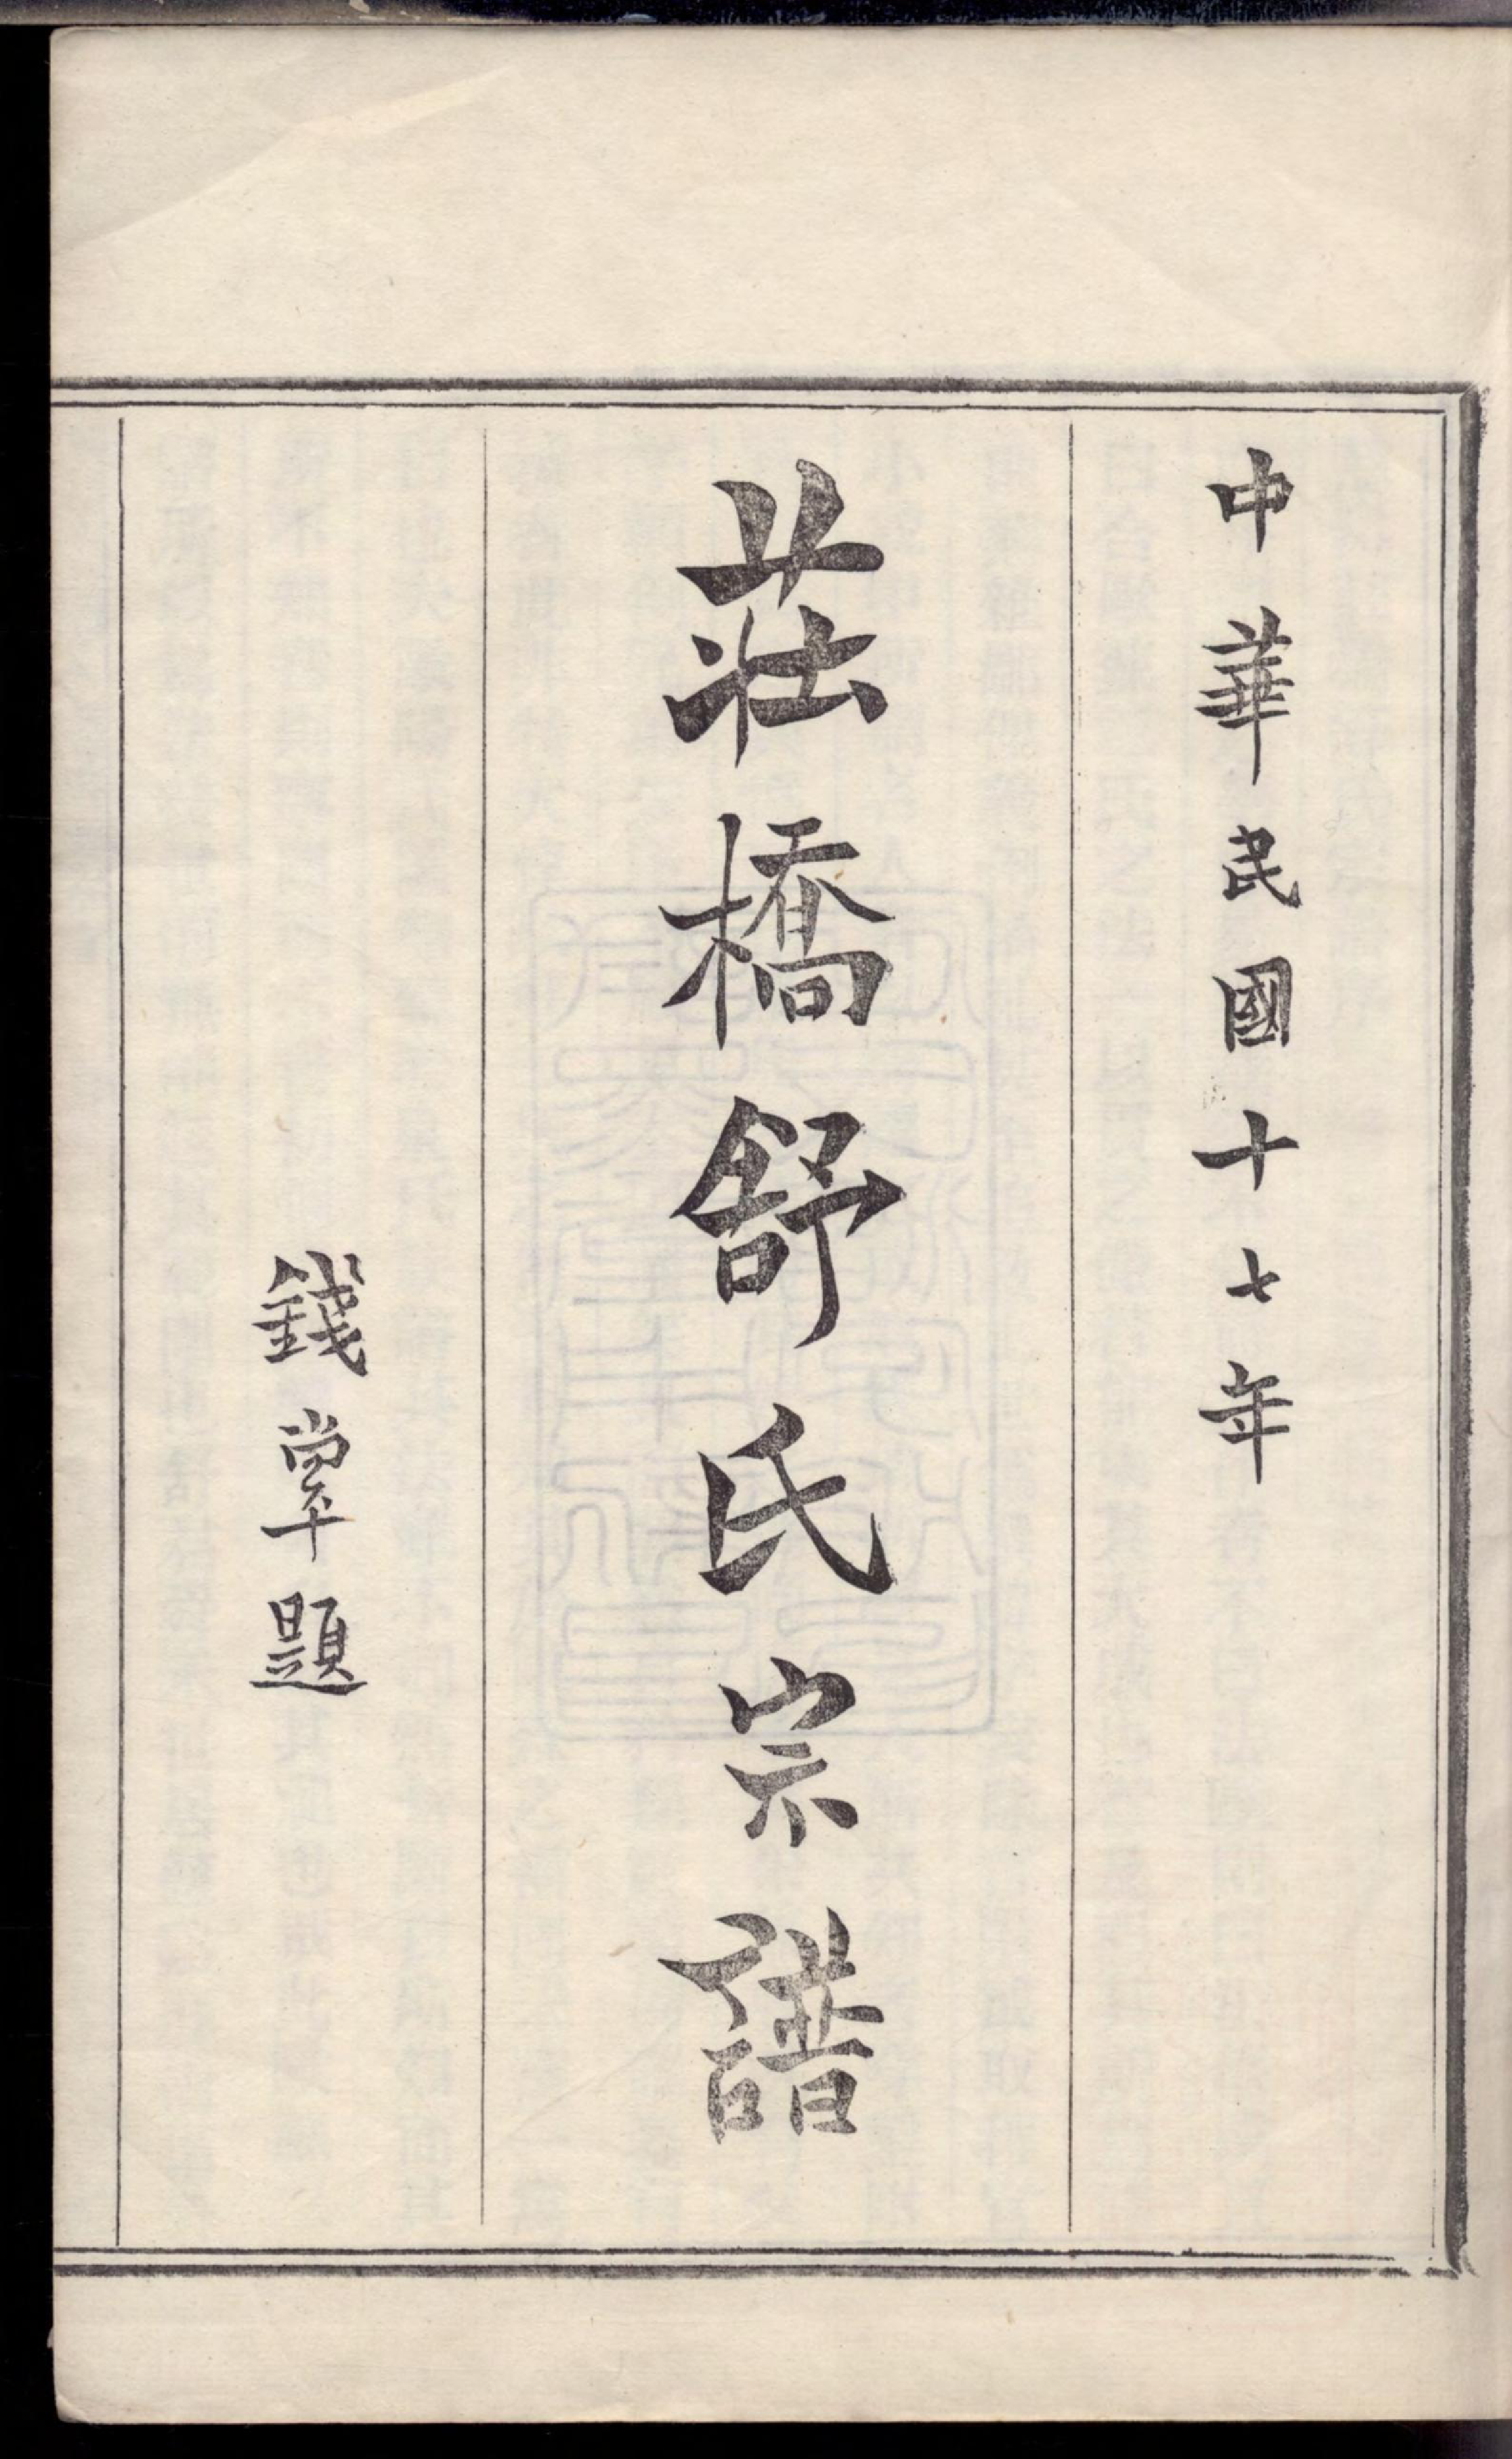 中華民國十七年
莊橋舒氏宗譜
錢罕題